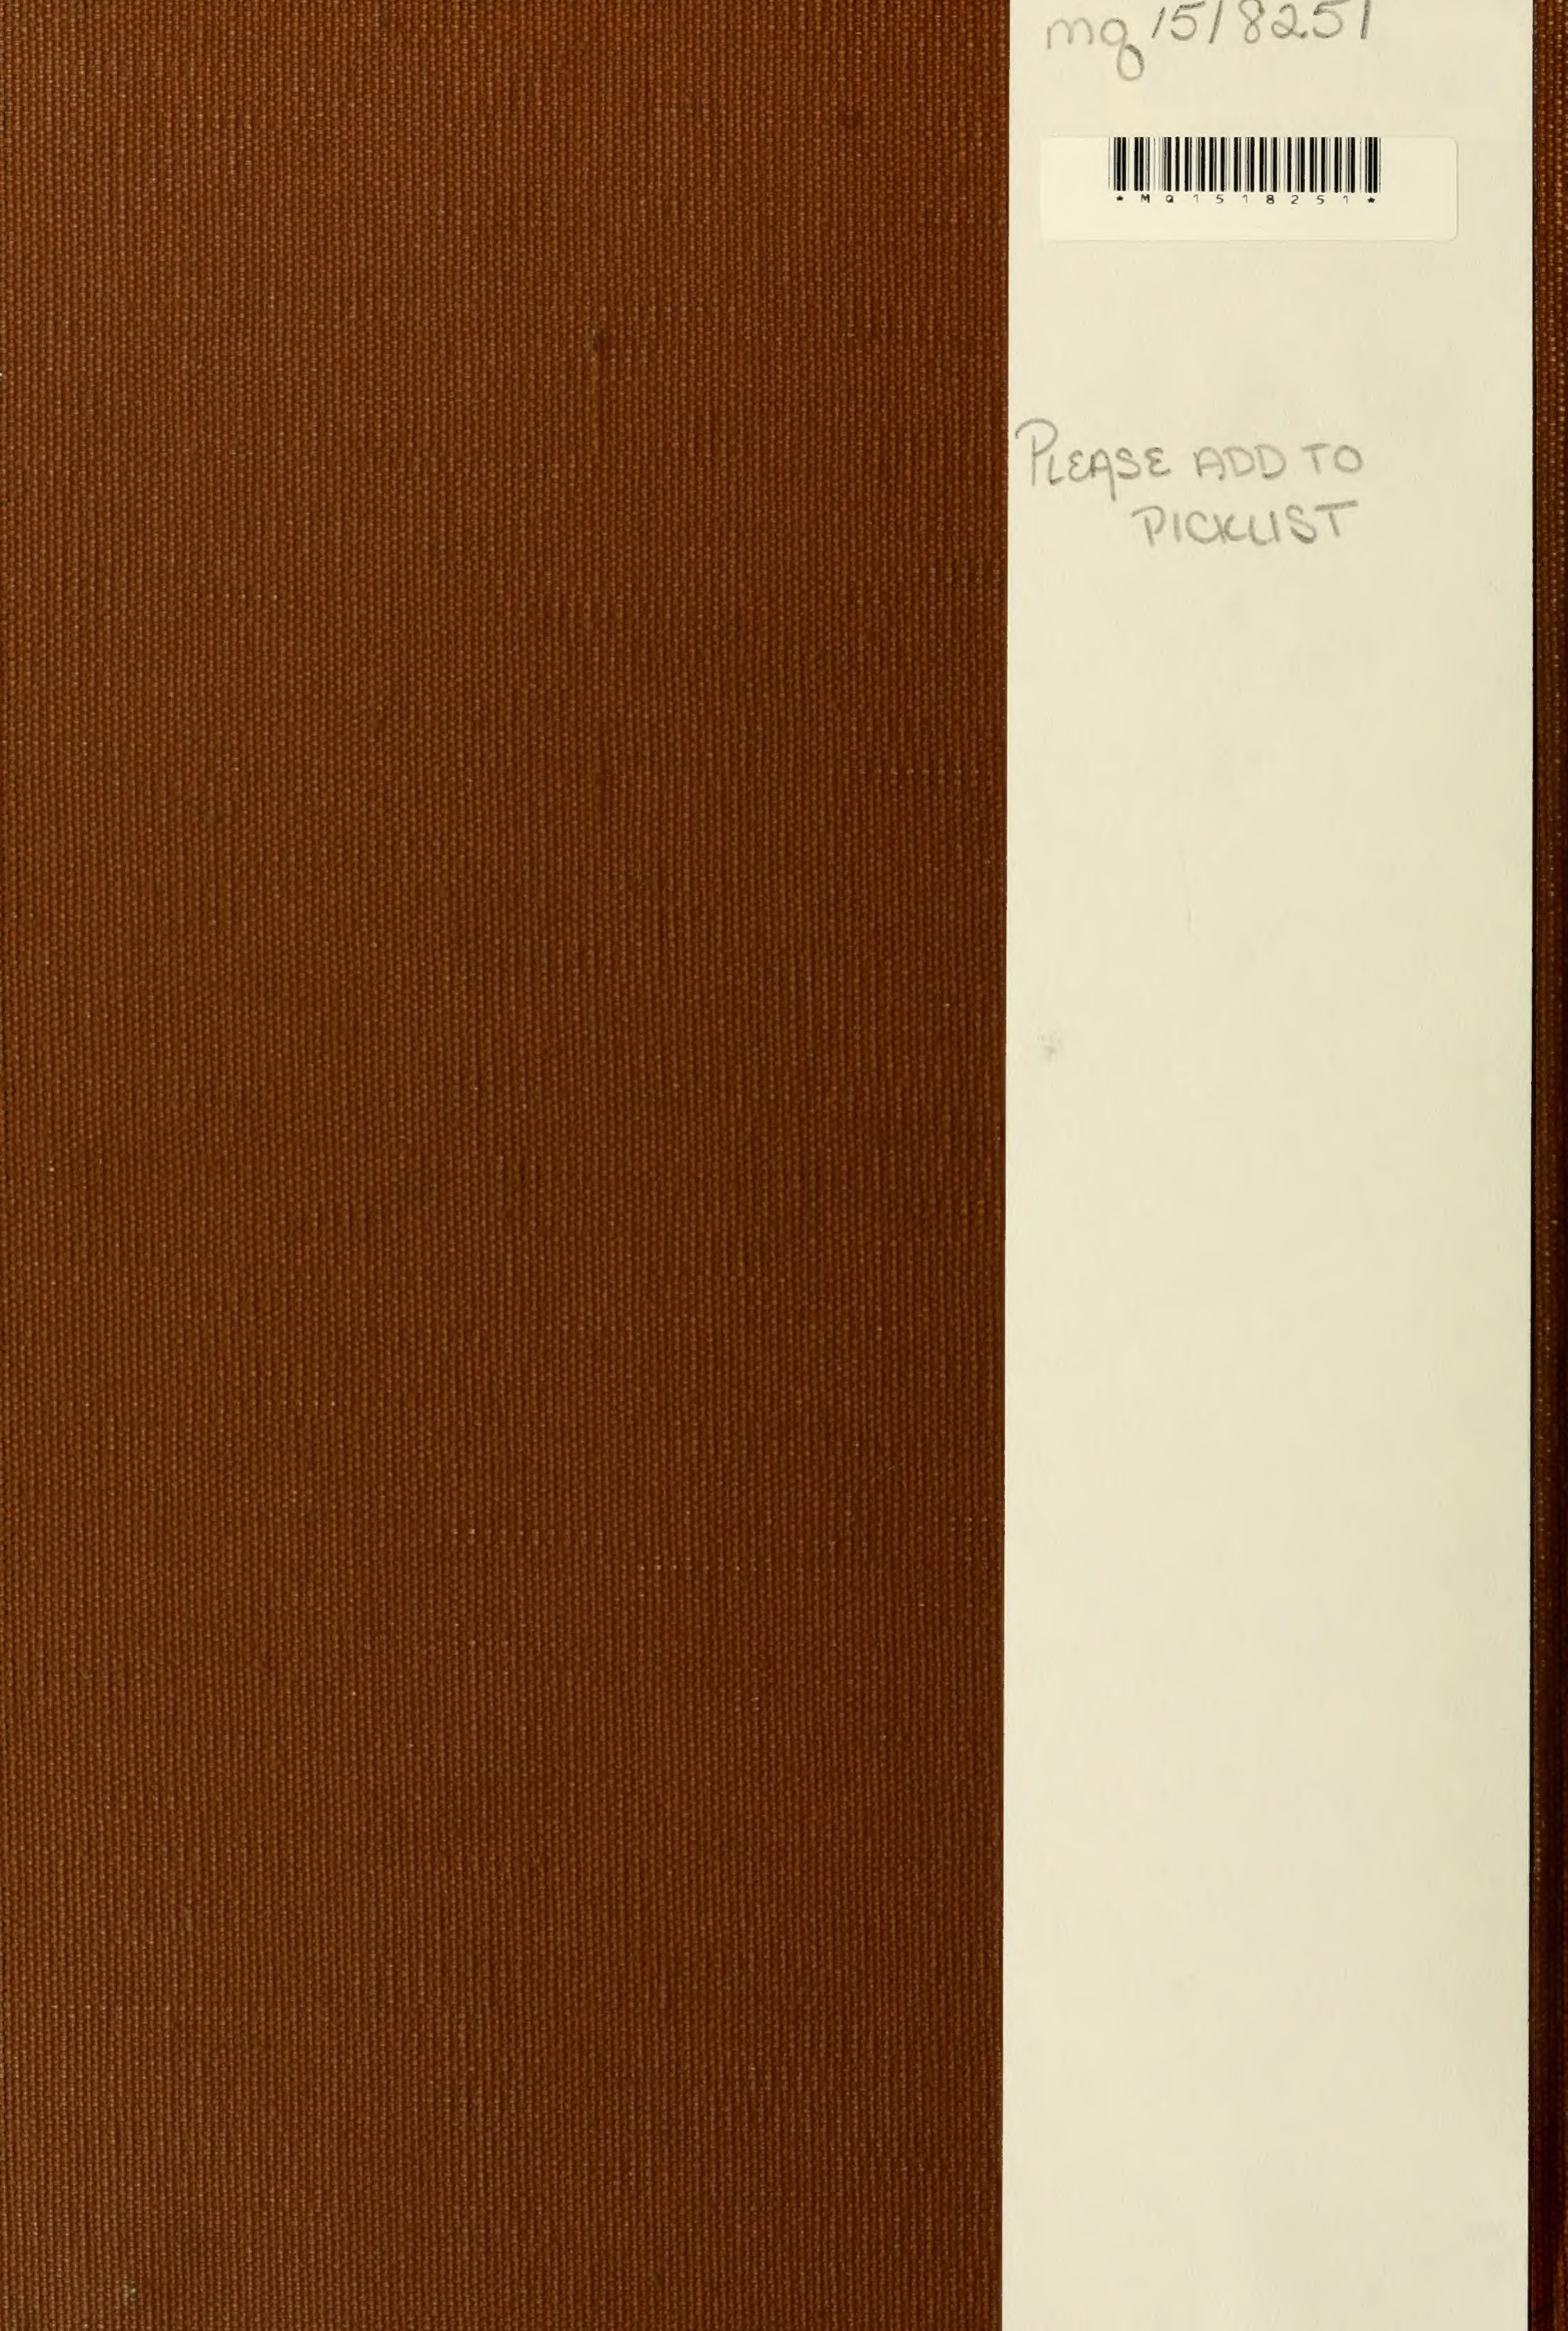 mq 1518251
* M Q 1 5 1 8 2 5 1 *
PLEASE ADD TO
PICKLIST